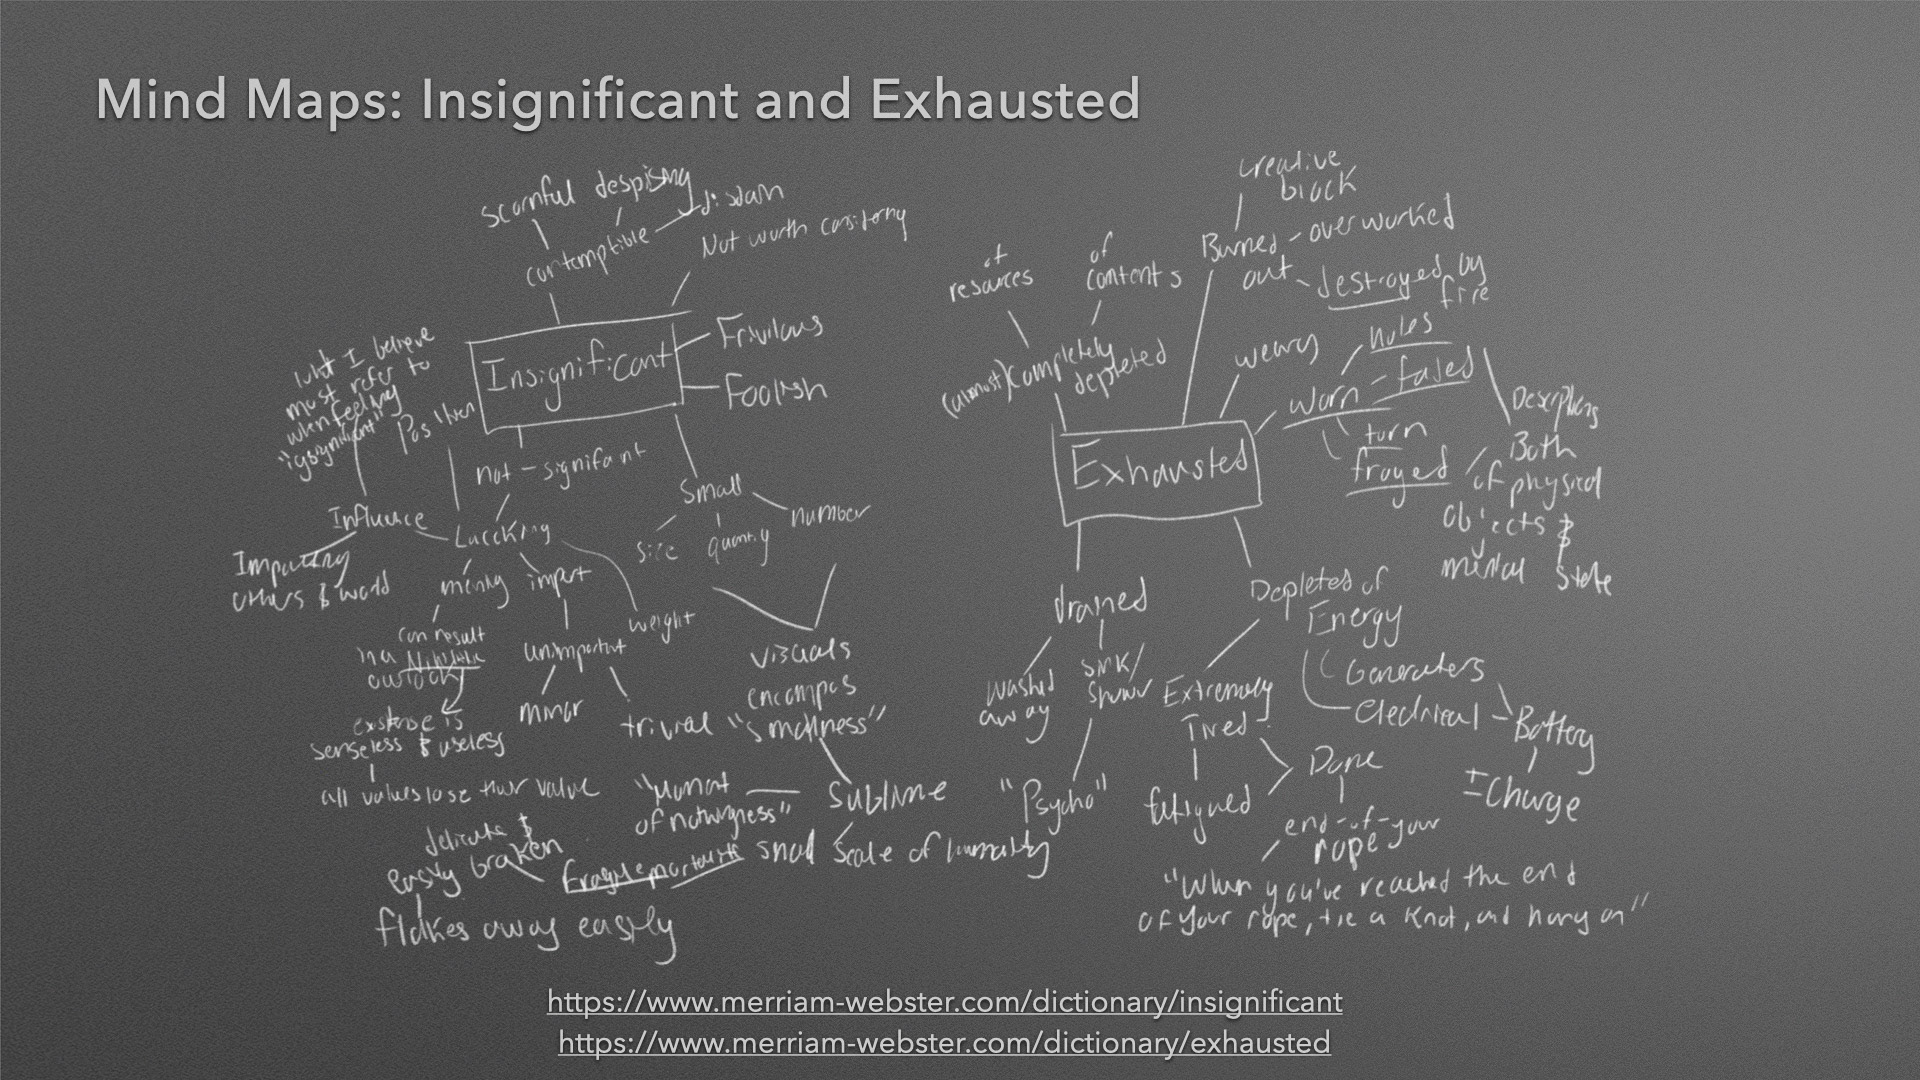 Mind Maps: Insignificant and Exhausted
scornful despising
disdain
contemptible
Not worth considerng
Insignificant
Frivilous
Foolish
what I believe
most refer to
when feeling
Position
not - signifant
Small
size
quantity
number
Influence
Impacting
others & world
Laccking
import
weight
can result
in a
outlook
existense is
senseless & useless
all values lose their value
unimportant
minor
trivial
visuals
encompas
"smallness"
Sublime
of nothingness"
small scale of humanity
Fragile mortality
delicate &
easily broken
flakes away easily
creative
block
Burned
out
overworked
destroyed by
fire
of
resources
of
contents
(almost) completely
depleted
weary
worn
holes
faded
torn
frayed
Describing
Both
of physical
objects &
mental state
Exhausted
drained
washed
away
sink/
shower
"Psycho"
Depleted of
Energy
Generaters
electrical
Battery
± Charge
Extremely
Tired
fatigued
Done
end-of-your
rope
"When you've reached the end
of your rope, tie a knot, and hang on"
https://www.merriam-webster.com/dictionary/insignificant
https://www.merriam-webster.com/dictionary/exhausted